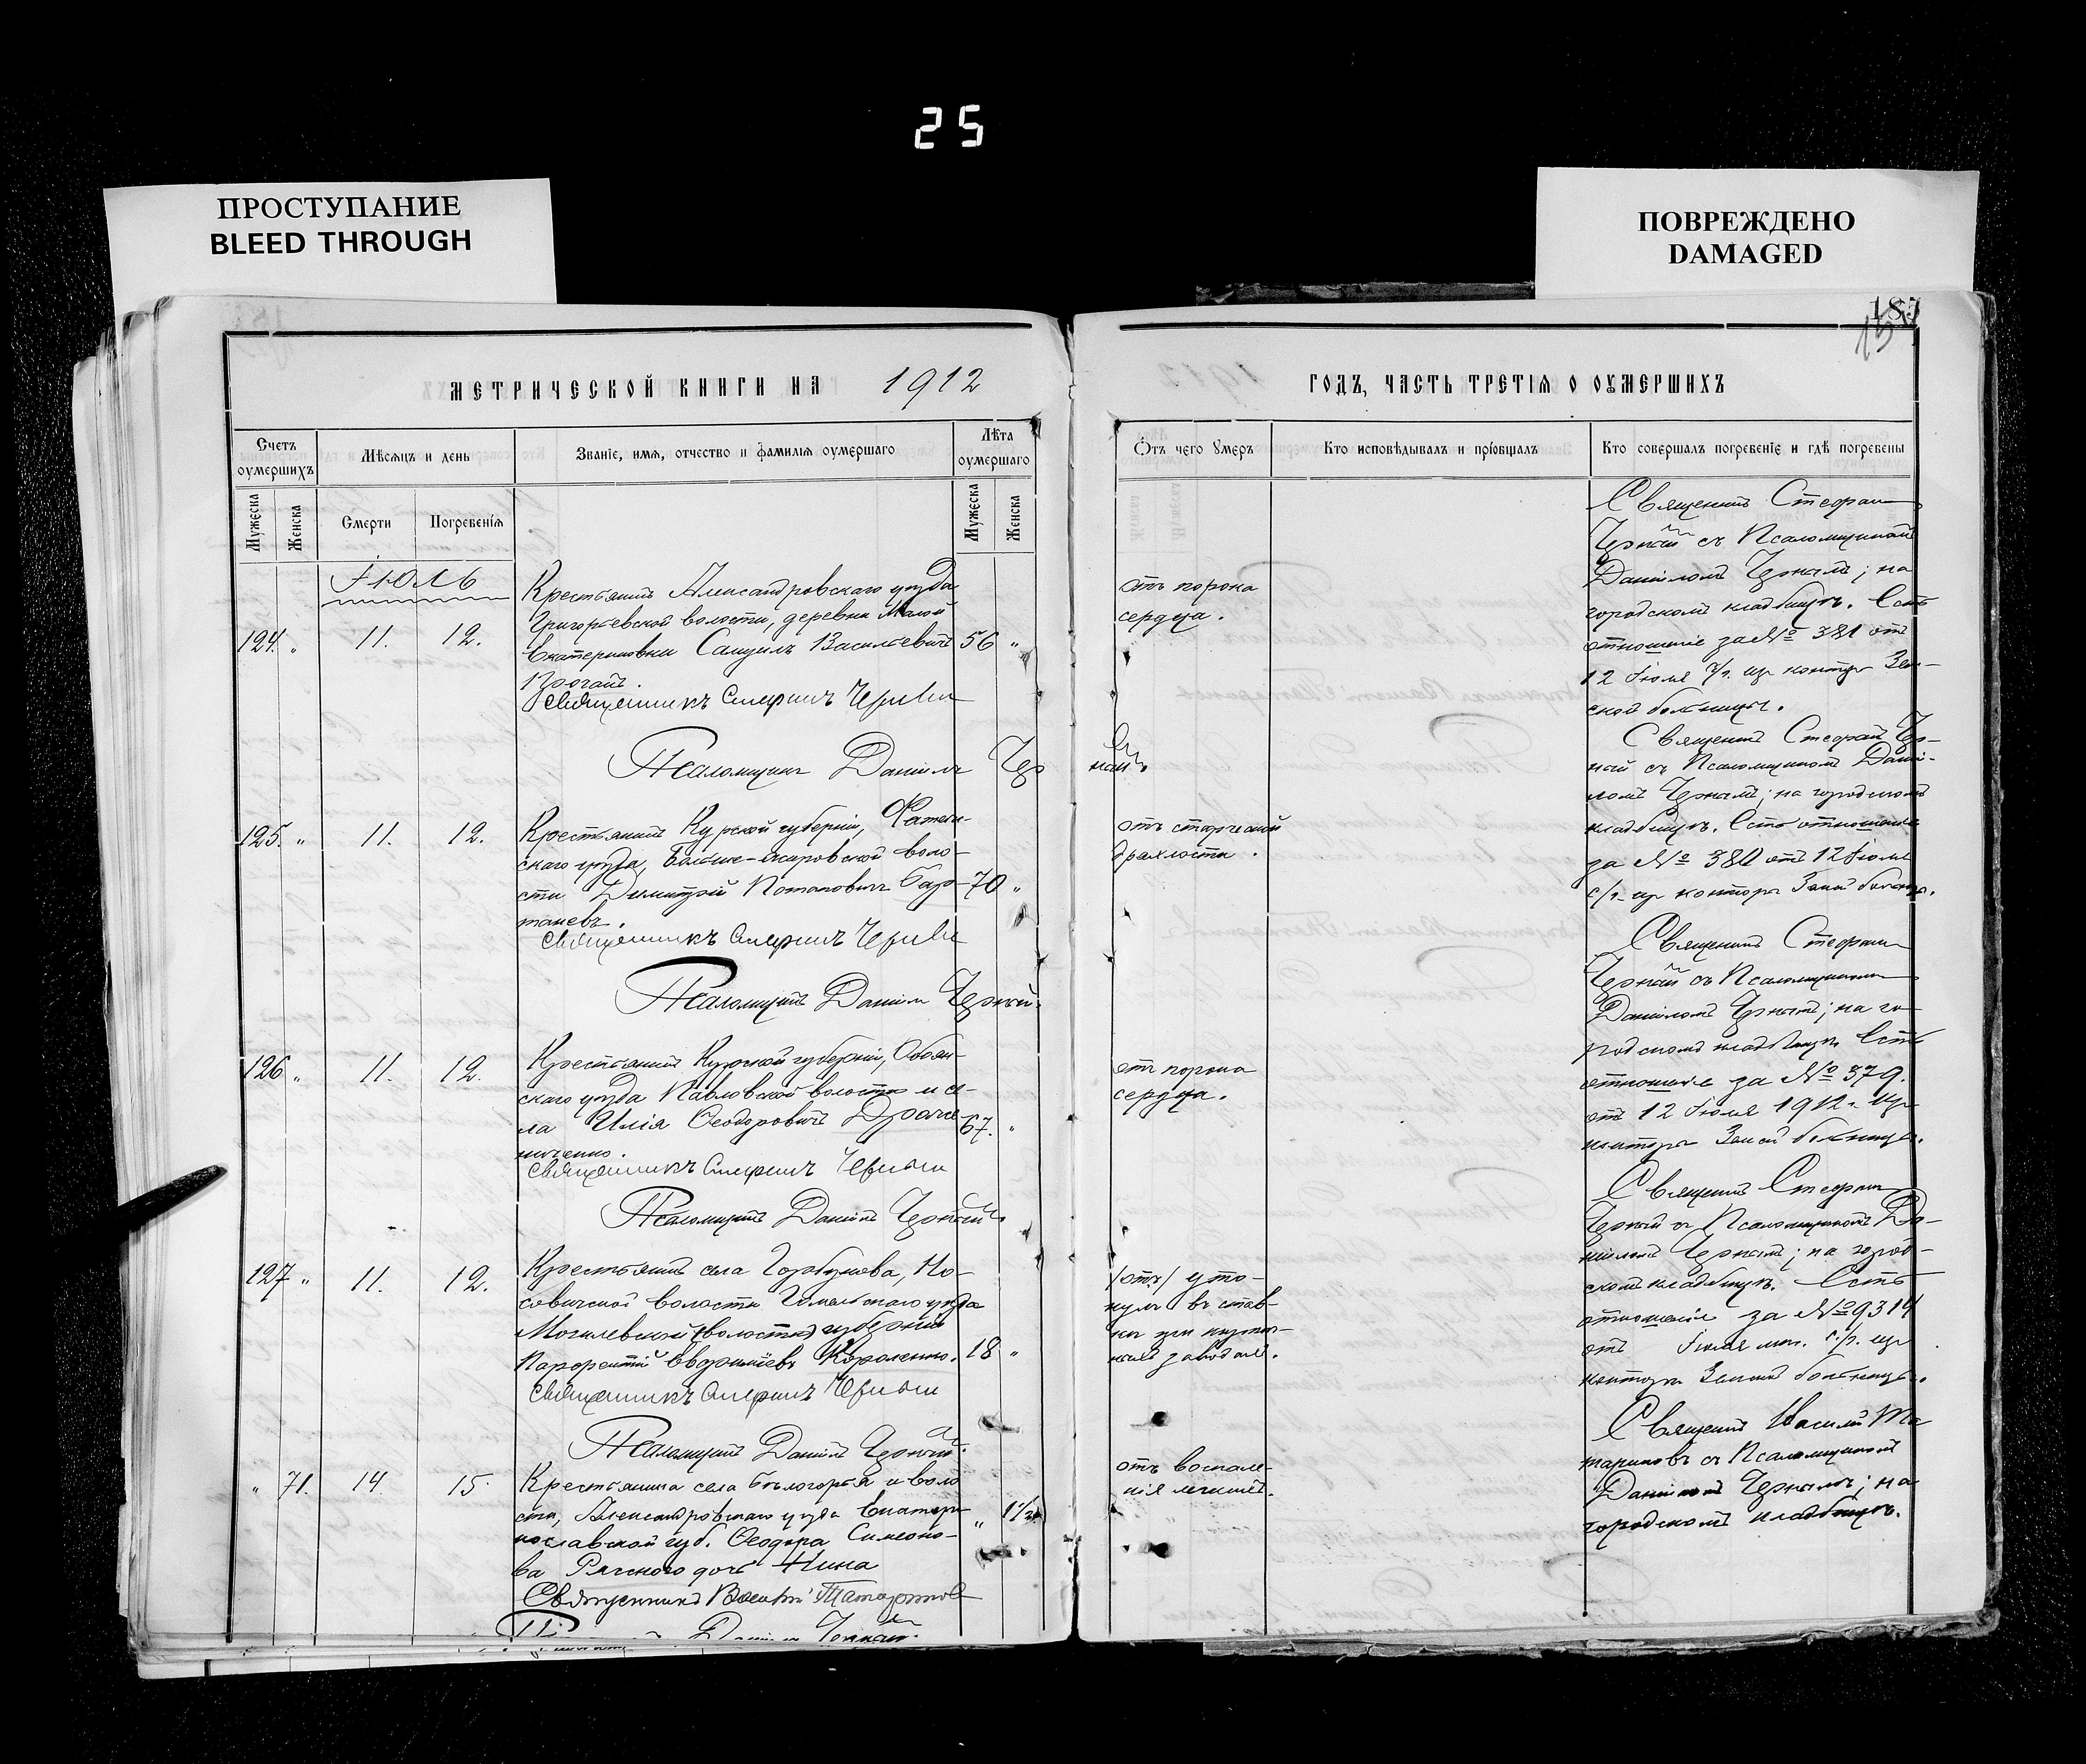 25
ПРОСТУПАНИЕ
BLEED THROUGH
ПОВРЕЖДЕНО
DAMAGED
187
МЕТРИЧЕСКОЙ КНИГИ НА 1912
ГОДЪ, ЧАСТЬ ТРЕТІЯ О ОУМЕРШИХЪ
Счетъ оумершихъ
Мѣсяцъ и день
Званіе, имя, отчество и фамилія оумершаго
Лѣта оумершаго
Мужеска
Женска
Смерти
Погребенія
Мужеска
Женска
Іюль
124. „ 11. 12.
Крестьянинъ Александровскаго уѣзда
Григорьевской волости, деревни Малой
Екатериновки Самуилъ Васильевичъ 56 „
Священникъ Стефанъ Черный
Псаломщикъ Даніилъ Черный
125. „ 11. 12.
Крестьянинъ Курской губерніи, Фатеж-
скаго уѣзда, волo-
сти Димитрій Потаповичъ 70 „
Священникъ Стефанъ Черный
Псаломщикъ Даніилъ Черный.
126 „ 11. 12.
Крестьянинъ Курской губерніи, Обоян-
скаго уѣзда Павловской волости и се-
ла Илія Ѳеодоровичъ 67. „
Священникъ Стефанъ Черный
Псаломщикъ Даніилъ Черный.
127 „ 11. 12.
Крестьянинъ села Горбунова, Но-
совичской волости Гомельскаго уѣзда
Могилевской (волости) губерніи
Короленко. 18 „
Священникъ Стефанъ Черный
Псаломщикъ Даніилъ Черный.
„ 71. 14. 15.
Крестьянина села Бѣлогорья и воло
сти, Александровскаго уѣзда Екатери
нославской губ. Ѳеодора Симеоно-
ва дочь Нина „ 1 1/2
Священникъ Василій Татариновъ
Даніилъ Черный.
Отъ чего Умеръ
Кто исповѣдывалъ и пріобщалъ
Кто совершалъ погребеніе и гдѣ погребены
отъ порока
сердца.
отъ старческой
дряхлости.
отъ порока
сердца.
(отъ) уто-
нулъ въ став-
отъ воспале-
нія легкихъ.
Священникъ Стефанъ
Черный съ Псаломщикомъ
Даніиломъ Чернымъ; на
городскомъ кладбищѣ. Есть
отношеніе за № 381 отъ
12 Іюля с/г. изъ конторы Зем-
ской больницы.
Священникъ Стефанъ Чер-
ный съ Псаломщикомъ Дані-
ломъ Чернымъ; на городскомъ
кладбищѣ. Есть отношеніе
за № 380 отъ 12 Іюля
с/г. изъ конторы Земской больницы.
Священникъ Стефанъ
Черный съ Псаломщикомъ
Даніиломъ Чернымъ; на го-
родскомъ кладбищѣ Есть
отношеніе за № 379.
отъ 12 Іюля 1912 г. изъ
конторы Земской больницы.
Священникъ Стефанъ
Черный съ Псаломщикомъ Да-
ніиломъ Чернымъ; на город-
скомъ кладбищѣ. Есть
отношеніе за № 9314
отъ Іюля с./г. изъ
конторы Земской больницы.
Священникъ Василій Та
тариновъ съ Псаломщикомъ
Даніиломъ Чернымъ; на
городскомъ кладбищѣ.